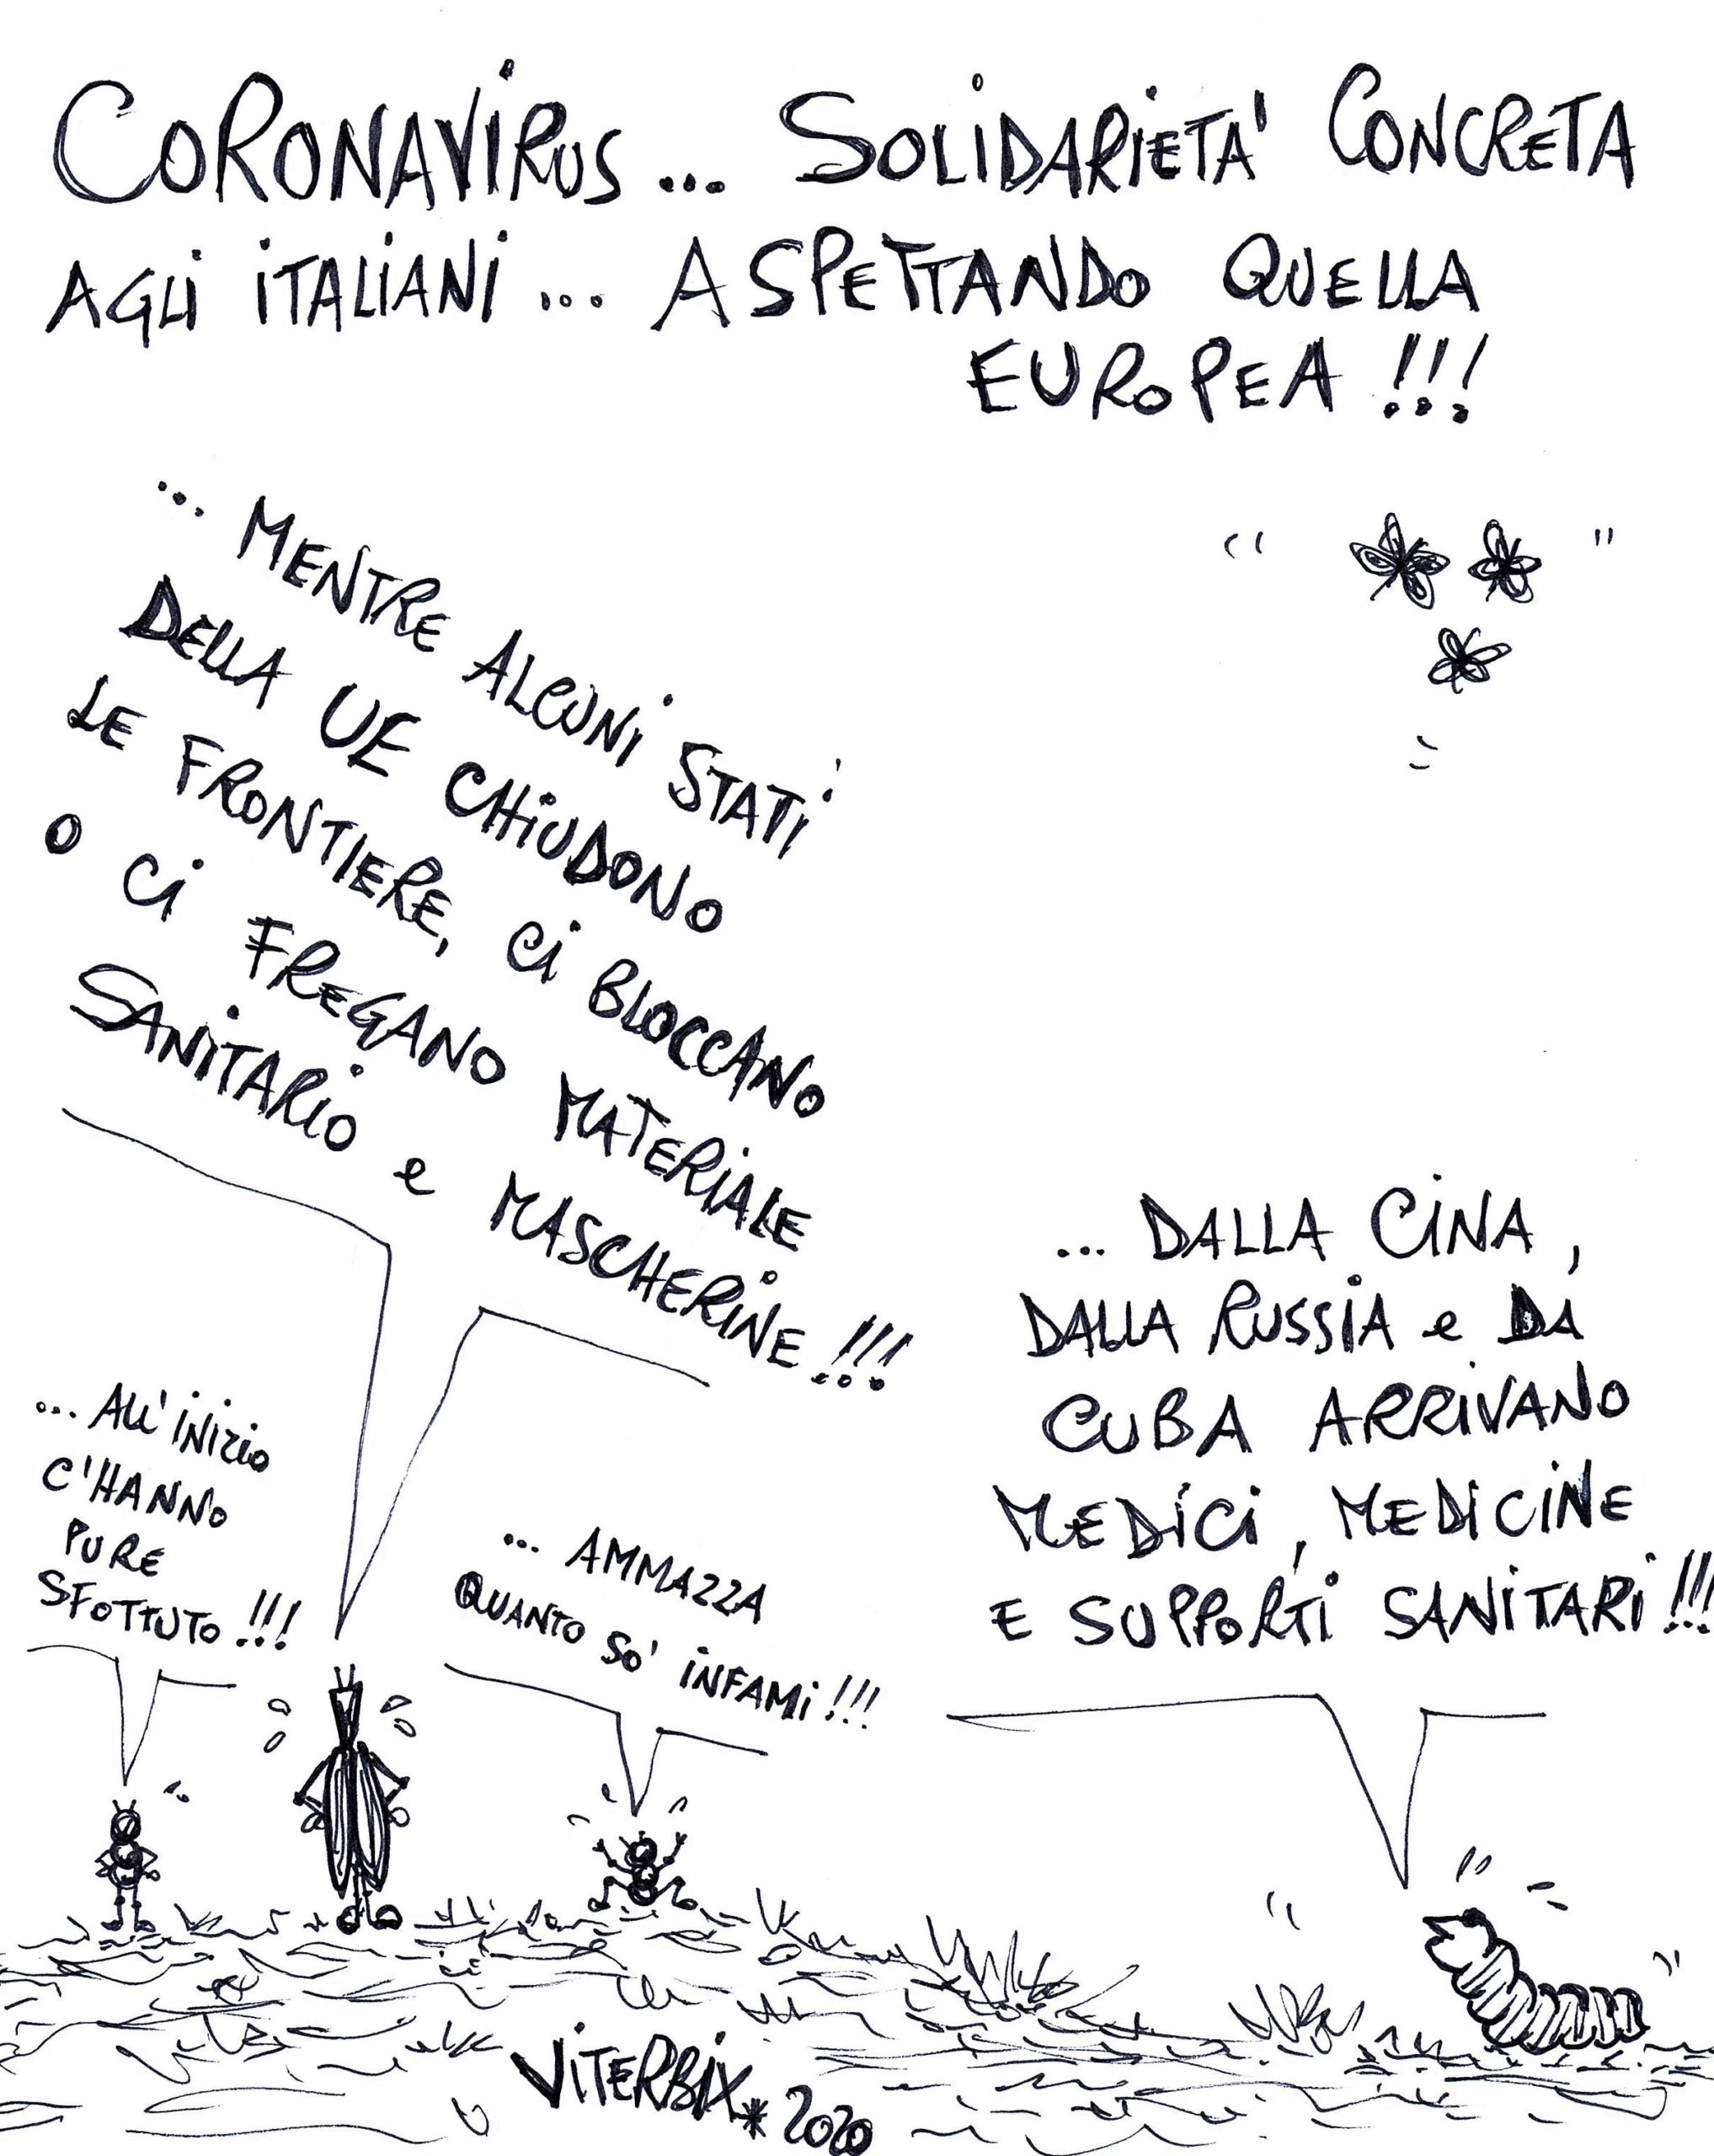 CORONAVIRUS... SOLIDARIETA' CONCRETA
AGLI ITALIANI... ASPETTANDO QUELLA
EUROPEA!!!
... MENTRE ALCUNI STATI
DELLA UE CHIUDONO
LE FRONTIERE, CI BLOCCANO
O CI FREGANO MATERIALE
SANITARIO e MASCHERINE!!!
... ALL'INIZIO
C'HANNO
PURE
SFOTTUTO!!!
... AMMAZZA
QUANTO SO' INFAMI!!!
... DALLA CINA,
DALLA RUSSIA e DA
CUBA ARRIVANO
MEDICI, MEDICINE
E SUPPORTI SANITARI!!!
VITERBIX* 2020